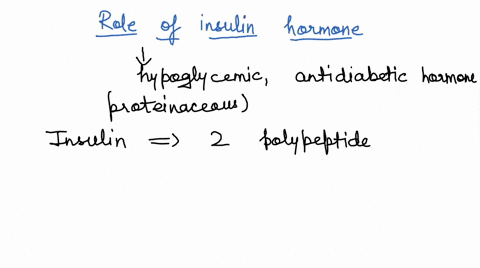 Role of insulin hormone
hypoglycemic, antidiabetic hormone
(proteinaceous)
Insulin => 2 polypeptide